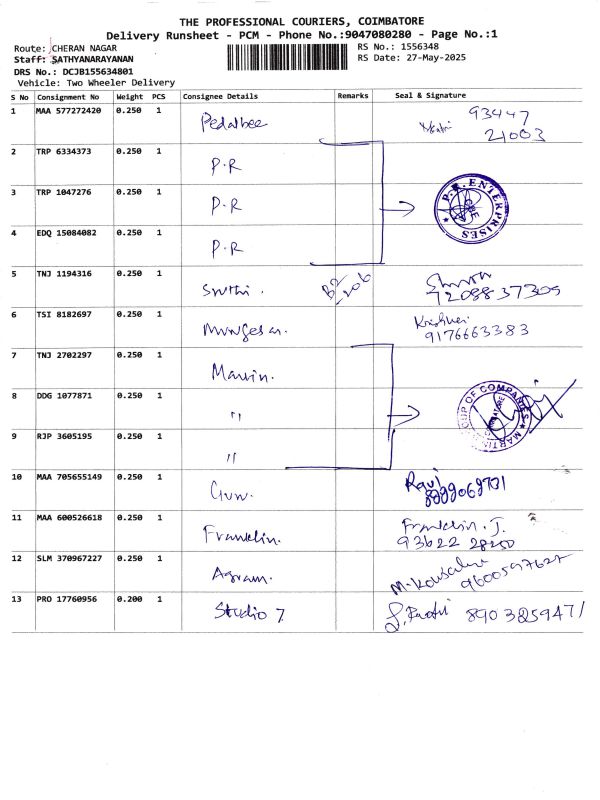 THE PROFESSIONAL COURIERS, COIMBATORE
Delivery Runsheet - PCM - Phone No.:9047080280 - Page No.:1
Route: CHERAN NAGAR RS No.: 1556348
Staff: SATHYANARAYANAN RS Date: 27-May-2025
DRS No.: DCJB155634801
Vehicle: Two Wheeler Delivery
S No Consignment No Weight PCS Consignee Details Remarks Seal & Signature
1 MAA 577272420 0.250 1 Pedalbee 93447
21003
2 TRP 6334373 0.250 1 P.R
3 TRP 1047276 0.250 1 P.R P.R. ENTERPRISES CBE
4 EDQ 15084082 0.250 1 P.R
5 TNJ 1194316 0.250 1 Sruthi. B2 206
7208837309
6 TSI 8182697 0.250 1 Murugesan.
9176663383
7 TNJ 2702297 0.250 1 Marvin.
8 DDG 1077871 0.250 1 " GROUP OF COMPANIES MARTIN
9 RJP 3605195 0.250 1 "
10 MAA 705655149 0.250 1 Guru. Ravi
11 MAA 600526618 0.250 1 Franklin. Franklin. J.
93622 28250
12 SLM 370967227 0.250 1 Agram. M. Kowsalya
9600597627
13 PRO 17760956 0.200 1 Studio 7 8903259471